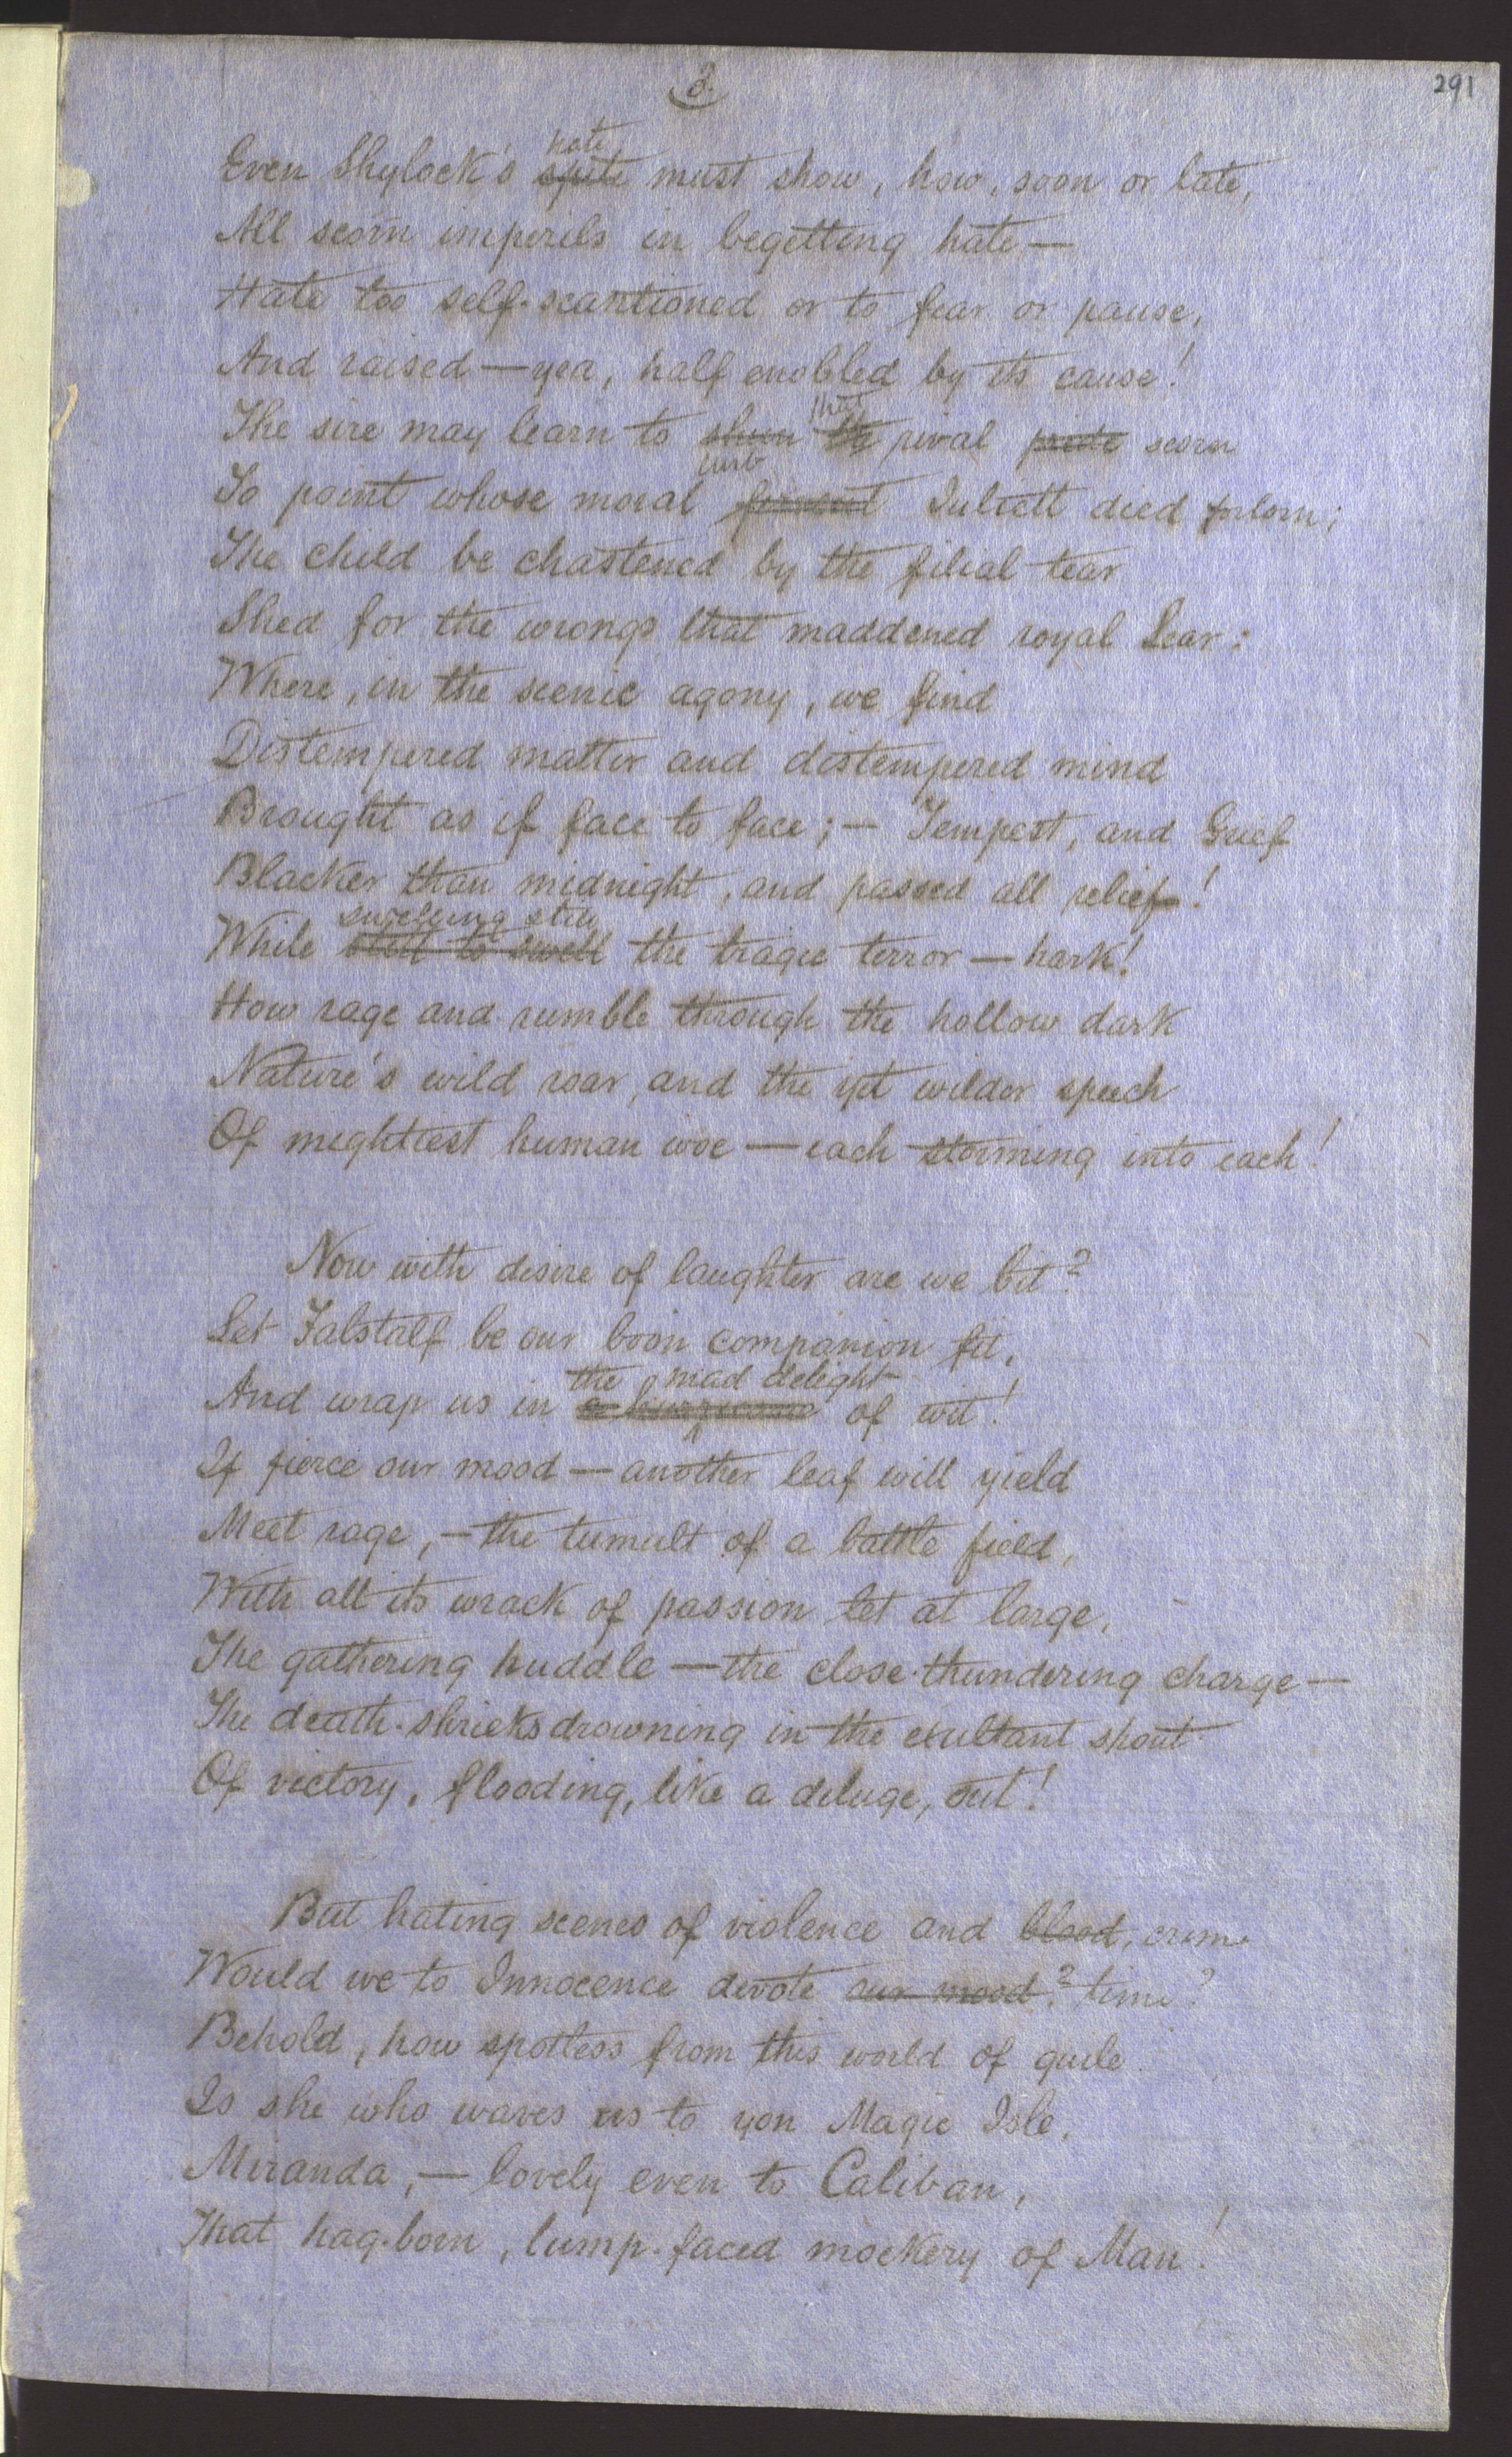 3.
291
hate
Even Shylock's spite must show, how, soon or late,
All scorn imperils in begetting hate—
Hate too self-scantioned or to fear or pause,
And raised—yea, half enobled by its cause!
that
The sire may learn to shun the rival pride scorn
curb
To point whose moral Juliett died forlorn;
The child be chastened by the filial tear
Shed for the wrongs that maddened royal Lear:
Where, in the scenic agony, we find
Distempered matter and distempered mind
Brought as if face to face;— Tempest, and Grief
Blacker than midnight, and passed all relief!
swelling still
While still to swell the tragic terror—hark!
How rage and rumble through the hollow dark
Nature's wild roar, and the yet wilder speech
Of mightiest human woe—each storming into each!
Now with desire of laughter are we bit?
Let Falstalf be our boon companion fit,
the mad delight
And wrap us in a hurricane of wit!
If fierce our mood—another leaf will yield
Meet rage,—the tumult of a battle field,
With all its wrack of passion let at large,
The gathering huddle—the close-thundering charge—
The death-shrieks drowning in the exultant shout
Of victory, flooding, like a deluge, out!
But hating scenes of violence and blood, crime
Would we to Innocence devote our mood? time?
Behold, how spotless from this world of guile
Is she who waves us to yon Magic Isle,
Miranda,— lovely even to Caliban,
That hag-born, lump-faced mockery of Man!